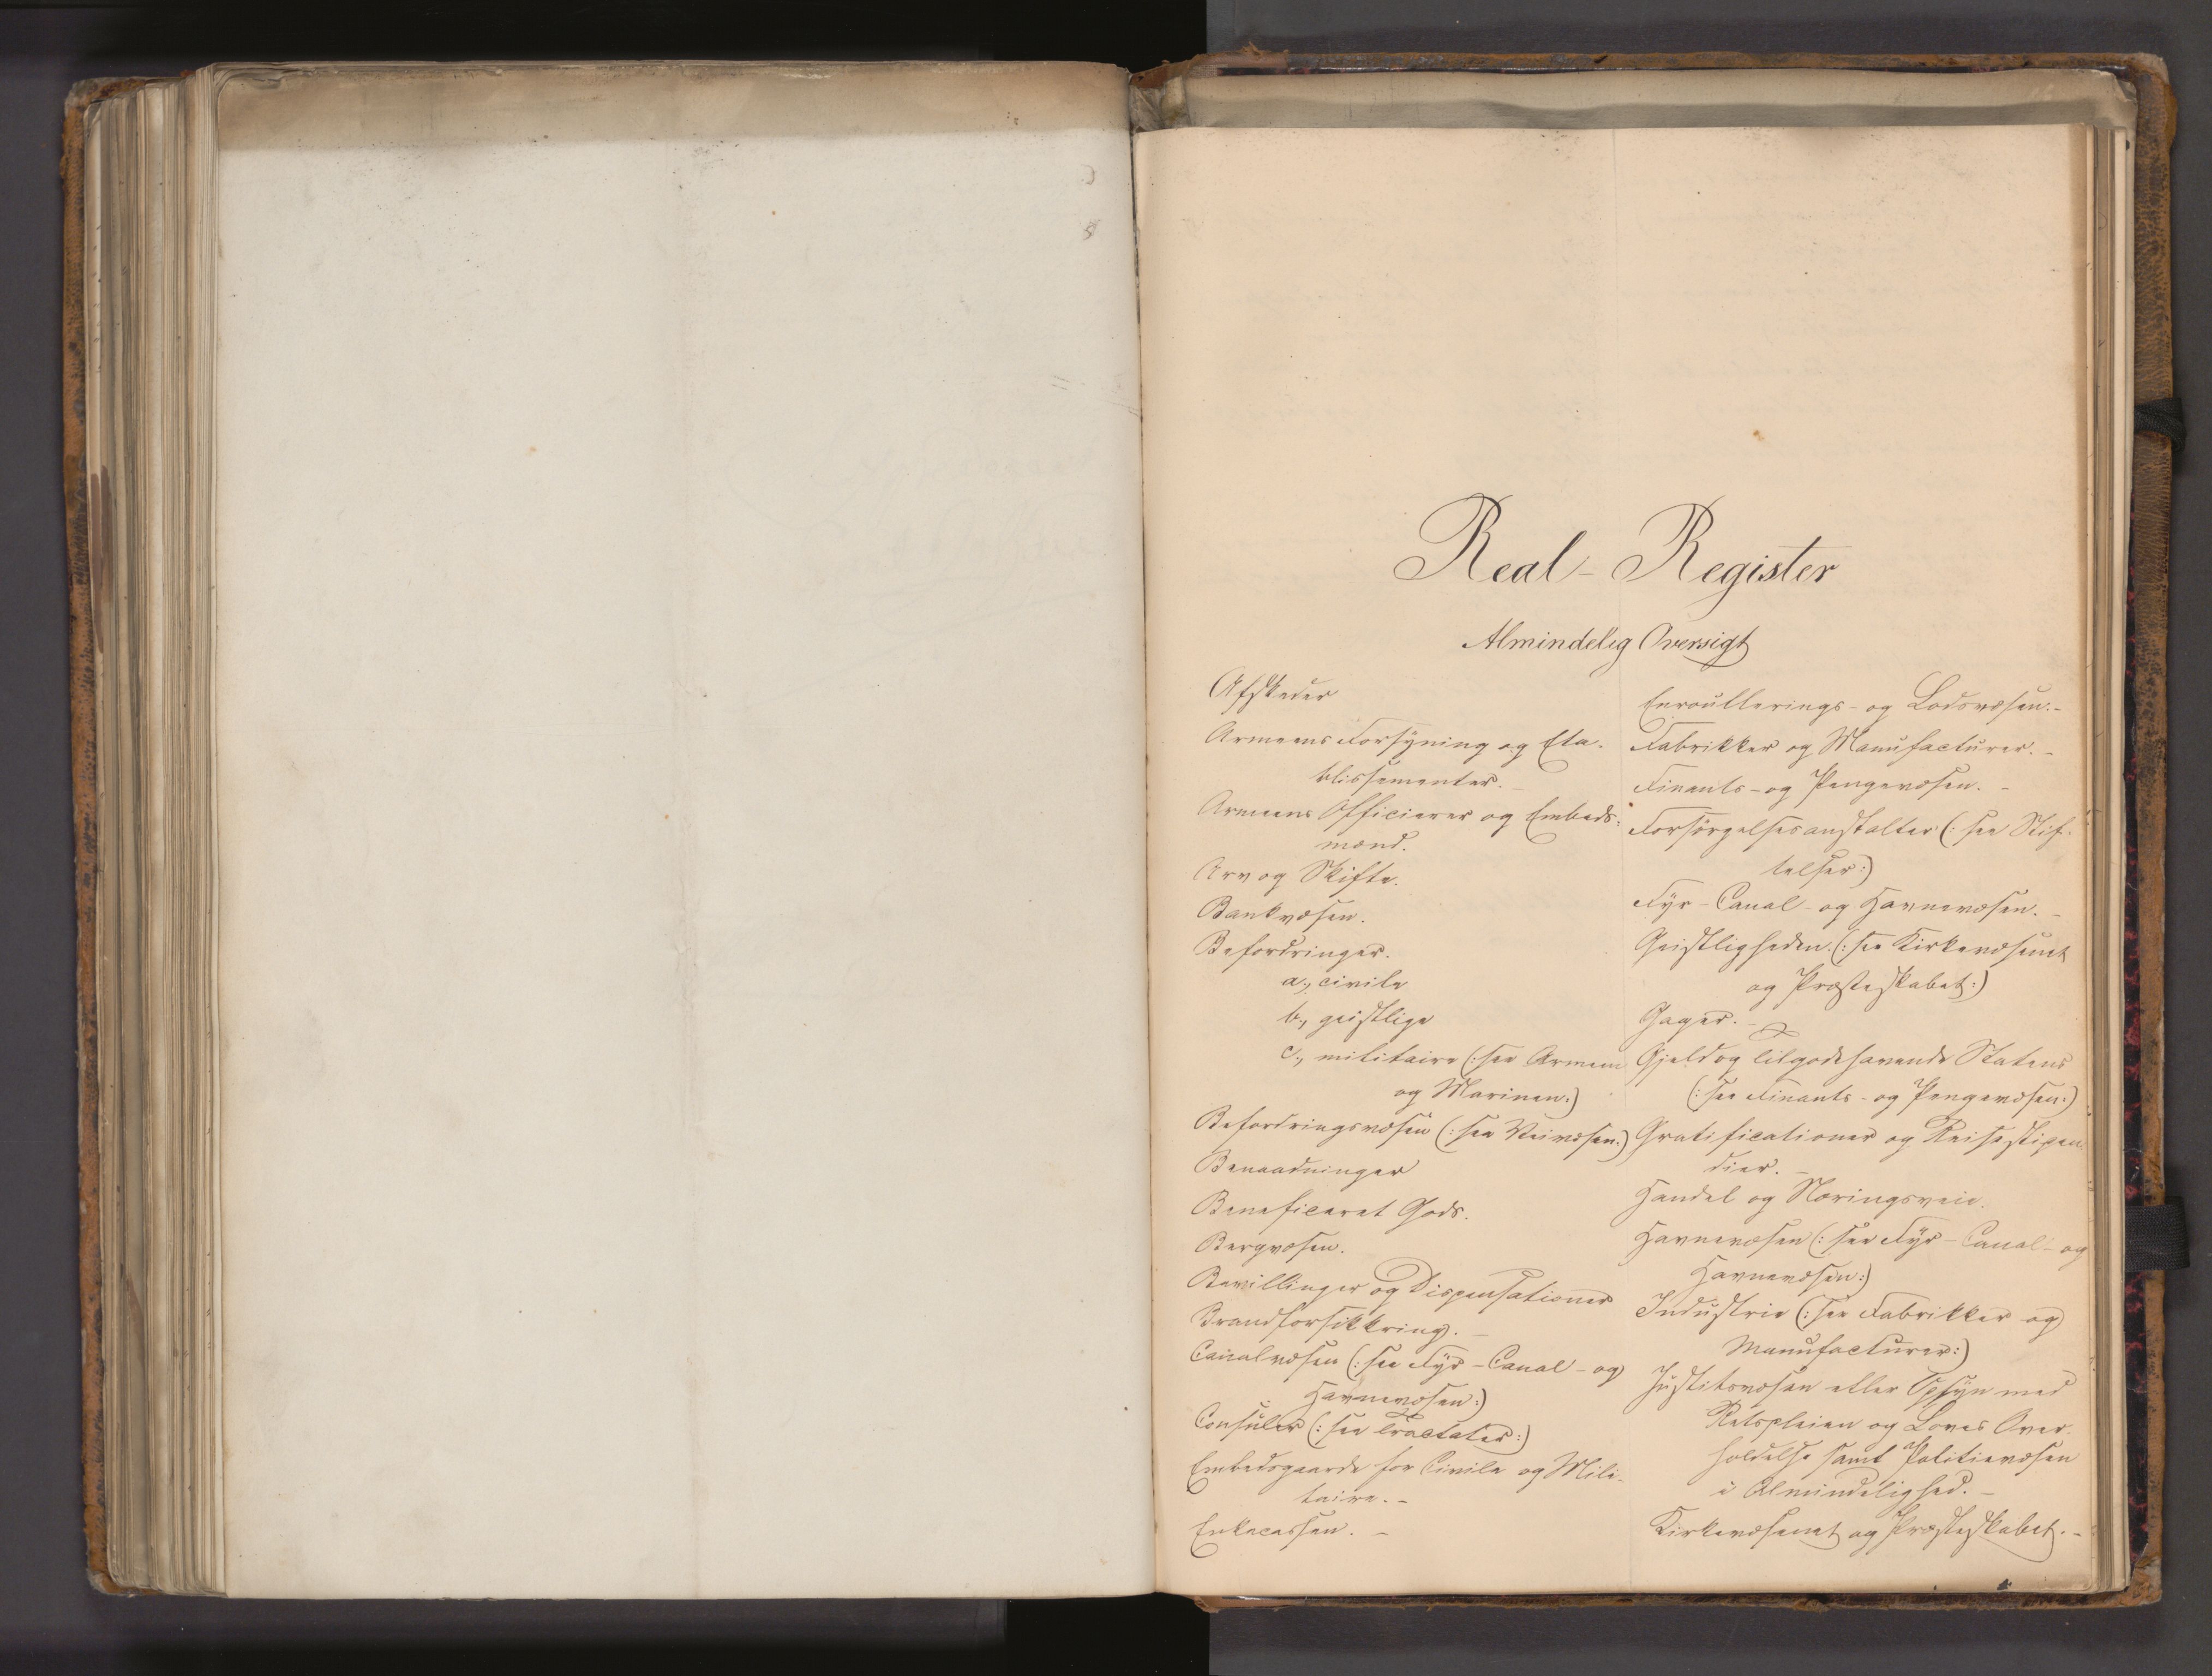 Real-Register
Almindelig Oversigt
Afskeder
Armeens Forsyning og Eta-
blissementer.
Armeens Officierer og Embeds-
mænd.
Arv og Skifte.
Bankvæsen.
Befordringer.
a., civile
b., geistlige
c., militaire (: see Armeen
og Marinen:)
Befordringsvæsen (: see Veivæsen:)
Benaadninger
Beneficeret Gods.
Bergvæsen.
Bevillinger og Dispensationer
Brandforsikkring. –
Canalvæsen (: see Fyr-Canal-og
Havnevæsen:)
Consuler (: see Tractater:)
Embedsgaarde for Civile og Mili-
taire. –
Enkecassen. –
Enroullerings- og Lodsvæsen. –
Fabrikker og Manufacturer. –
Finants- og Pengevæsen. –
Forsørgelsesanstalter (: see Stif-
telser:)
Fyr-Canal-og Havnevæsen. –
Geistligheden (: see Kirkevæsenet
og Præsteskabet:)
Gager. –
Gjeld og Tilgodehavende Statens
(: see Finants- og Pengevæsen:)
Gratificationer og Reisestipen-
dier. –
Handel og Næringsveie.
Havnevæsen (: see Fyr-Canal-og
Havnevæsen:)
Industrie (: see Fabrikker og
Manufacturer:)
Justitsvæsen eller Opsyn med
Retspleien og Loves Over-
holdelse samt Politievæsen
i Almindelighed. –
Kirkevæsenet og Præsteskabet. –